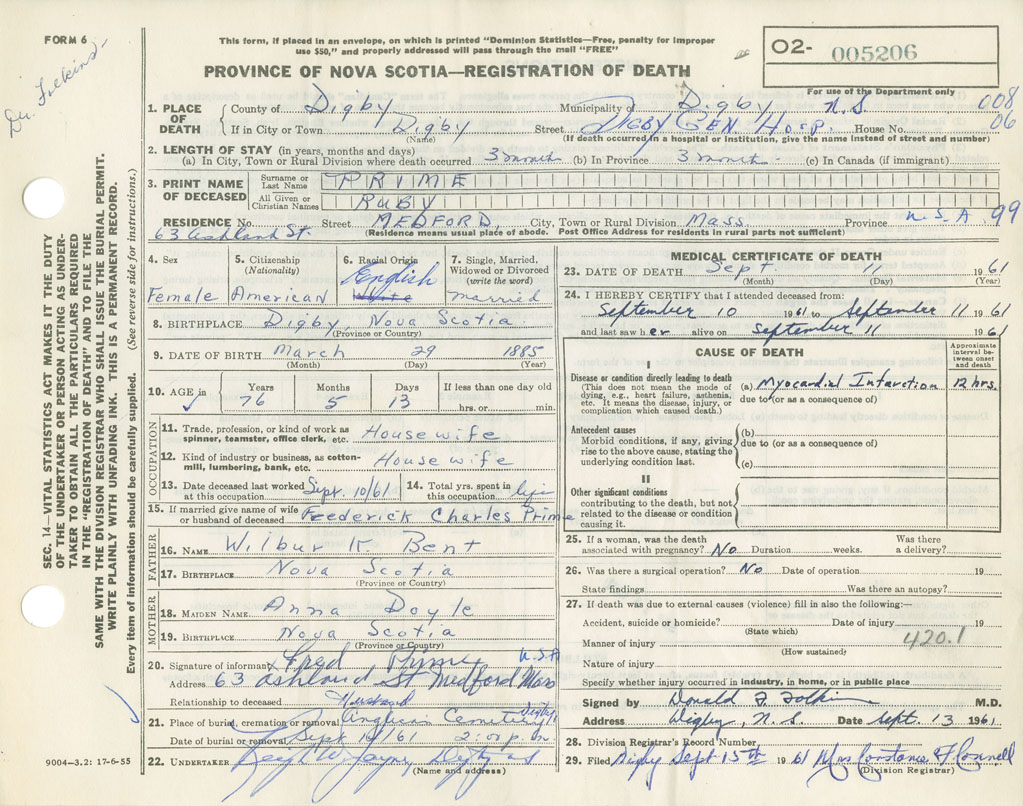 FORM 6
This form, if placed in an envelope, on which is printed "Dominion Statistics—Free, penalty for improper
use $50," and properly addressed will pass through the mail "FREE"
O2- 005206
PROVINCE OF NOVA SCOTIA—REGISTRATION OF DEATH
For use of the Department only
Dr. Folkins
008
06
1. PLACE OF DEATH
County of Digby Municipality of Digby N.S
If in City or Town Digby Street DIGBY GEN Hosp. House No.
(Name) (If death occurred in a hospital or institution, give the name instead of street and number)
2. LENGTH OF STAY (in years, months and days)
(a) In City, Town or Rural Division where death occurred 3 month (b) In Province 3 month (c) In Canada (if immigrant)
3. PRINT NAME OF DECEASED
Surname or Last Name PRIME
All Given or Christian Names RUBY
RESIDENCE No. 63 Ashland St. Street MEDFORD, City, Town or Rural Division Mass Province U.S.A 99
(Residence means usual place of abode. Post Office Address for residents in rural parts not sufficient)
4. Sex
Female
5. Citizenship
(Nationality)
American
6. Racial Origin
English
White
7. Single, Married,
Widowed or Divorced
(write the word)
married
8. BIRTHPLACE Digby, Nova Scotia
(Province or Country)
9. DATE OF BIRTH March 29 1885
(Month) (Day) (Year)
10. AGE in
Years Months Days If less than one day old
76 5 13 hrs. or min.
OCCUPATION
11. Trade, profession, or kind of work as
spinner, teamster, office clerk, etc. Housewife
12. Kind of industry or business, as cotton-
mill, lumbering, bank, etc. Housewife
13. Date deceased last worked
at this occupation Sept. 10/61
14. Total yrs. spent in
this occupation life
15. If married give name of wife
or husband of deceased Frederick Charles Prime
FATHER
16. NAME Wilbur K. Bent
17. BIRTHPLACE Nova Scotia
(Province or Country)
MOTHER
18. MAIDEN NAME Anna Doyle
19. BIRTHPLACE Nova Scotia
(Province or Country)
20. Signature of informant x Fred Prime U.S.A
Address 63 Ashland St Medford Mass
Relationship to deceased Husband
21. Place of burial, cremation or removal Anglican Cemetery Digby
Date of burial or removal Sept 14/61 2:00 p.m
22. UNDERTAKER
(Name and address)
MEDICAL CERTIFICATE OF DEATH
23. DATE OF DEATH Sept. 11 1961
(Month) (Day) (Year)
24. I HEREBY CERTIFY that I attended deceased from:
September 10 1961 to September 11 1961
and last saw her alive on September 11 1961
CAUSE OF DEATH
Approximate
interval be-
tween onset
and death
I
Disease or condition directly leading to death
(This does not mean the mode of
dying, e.g., heart failure, asthenia,
etc. It means the disease, injury, or
complication which caused death.)
(a) Myocardial Infarction 12 hrs.
due to (or as a consequence of)
Antecedent causes
Morbid conditions, if any, giving
rise to the above cause, stating the
underlying condition last.
(b)
due to (or as a consequence of)
(c)
II
Other significant conditions
contributing to the death, but not
related to the disease or condition
causing it.
25. If a woman, was the death
associated with pregnancy? No Duration weeks. Was there
a delivery?
26. Was there a surgical operation? No Date of operation 19
State findings Was there an autopsy?
27. If death was due to external causes (violence) fill in also the following:—
Accident, suicide or homicide? Date of injury 19
(State which)
420.1
Manner of injury
(How sustained)
Nature of injury
Specify whether injury occurred in industry, in home, or in public place
Signed by Donald F Folkins M.D.
Address Digby, N.S. Date Sept. 13 1961
28. Division Registrar's Record Number
29. Filed Digby Sept 15th 1961 Mrs Constance F Connell
(Division Registrar)
SEC. 14—VITAL STATISTICS ACT MAKES IT THE DUTY
OF THE UNDERTAKER OR PERSON ACTING AS UNDER-
TAKER TO OBTAIN ALL THE PARTICULARS REQUIRED
IN THE "REGISTRATION OF DEATH" AND TO FILE THE
SAME WITH THE DIVISION REGISTRAR WHO SHALL ISSUE THE BURIAL PERMIT.
WRITE PLAINLY WITH UNFADING INK. THIS IS A PERMANENT RECORD.
Every item of information should be carefully supplied. (See reverse side for instructions.)
9004—3.2: 17-6-55